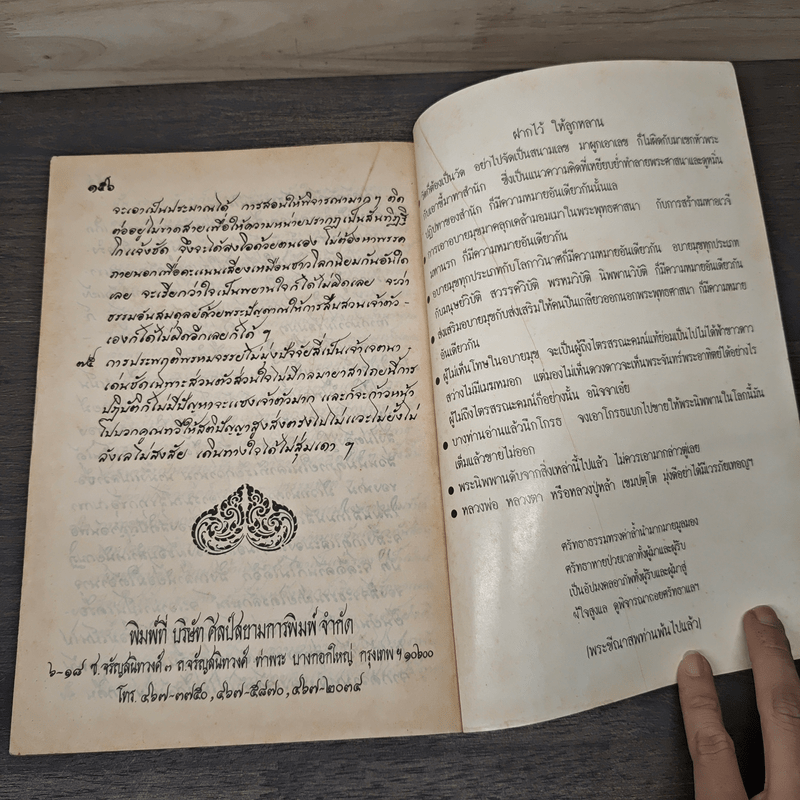 ๑๕๖
จะเอาเป็นประมาณได้ การสอนให้พิจารณามากๆ ติด
ต่ออยู่ไม่ขาดสายเพื่อให้ความหน่ายปรากฏเป็นสันทิฏฐิ
โกแจ้งชัด จึงจะได้ลงใจด้วยตนเอง ไม่ต้องหาพรรค
ภายนอกเพื่อคะแนนเสียงเหมือนชาวโลกนิยมกันอันใด
เลย จะเรียกว่าใจเป็นพยานใจก็ได้ไม่ผิดเลย จะว่า
ธรรมอันสมดุลย์ด้วยพระปัญญาณให้การสืบสวนเจ้าตัว-
เองก็ได้ไม่ผิดอีกเลยก็ได้ ๆ
๗๕ การประพฤติพรหมจรรย์ไม่มุ่งปัจจัยสี่เป็นเจ้าเจตนา
เด่นชัดเฉพาะส่วนตัวส่วนใจไม่มีกลมายาสาไถยนี้การ
ปฏิบัติก็ไม่มีปัญหาจะแซงเจ้าตัวมาก และก็จะก้าวหน้า
ไปบวกคูณทวีให้สติปัญญาสูงส่งตรงไปไม่แวะไม่ยั้งไม่
ลังเลไม่สงสัย เดินทางใจได้ไม่สุ่มเดา ๆ
พิมพ์ที่ บริษัท ศิลป์สยามการพิมพ์ จำกัด
๖-๑๘ ซ.จรัญสนิทวงศ์ ๓ ถ.จรัญสนิทวงศ์ ท่าพระ บางกอกใหญ่ กรุงเทพฯ ๑๐๖๐๐
โทร. ๔๖๗-๓๗๕๐, ๔๖๗-๕๘๗๐, ๔๖๗-๒๐๓๔
ฝากไว้ ให้ลูกหลาน
วัดก็ต้องเป็นวัด อย่าไปจัดเป็นสนามเลข มาผูกเอาเลข ก็ไม่ผิดกับมาเขกหัวพระ
กับเอาขี้มาทาสำนัก ซึ่งเป็นแนวความคิดที่เหยียบย่ำทำลายพระศาสนาและดูหมิ่น
ปฏิปทาของสำนัก ก็มีความหมายอันเดียวกันนั้นแล
การเอาอบายมุขมาคลุกเคล้ามอมเมาในพระพุทธศาสนา กับการสร้างมหาอเวจี
มหานรก ก็มีความหมายอันเดียวกัน
● อบายมุขทุกประเภทกับโลกาวินาศก็มีความหมายอันเดียวกัน อบายมุขทุกประเภท
กับมนุษย์วิบัติ สวรรค์วิบัติ พรหมวิบัติ นิพพานวิบัติ ก็มีความหมายอันเดียวกัน
● ส่งเสริมอบายมุขกับส่งเสริมให้คนปีนเกลียวออกนอกพระพุทธศาสนา ก็มีความหมาย
อันเดียวกัน
● ผู้ไม่เห็นโทษในอบายมุข จะเป็นผู้ถึงไตรสรณะคมณ์แท้ย่อมเป็นไปไม่ได้ฟ้าขาวดาว
สว่างไม่มีเมฆหมอก แต่มองไม่เห็นดวงดาวจะเห็นพระจันทร์พระอาทิตย์ได้อย่างไร
ผู้ไม่ถึงไตรสรณะคมณ์ก็อย่างนั้น อนิจจาเอ๋ย
● บางท่านอ่านแล้วนึกโกรธ จงเอาโกรธแบกไปขายให้พระนิพพานในโลกนี้มัน
เต็มแล้วขายไม่ออก
● พระนิพพานดับจากสิ่งเหล่านี้ไปแล้ว ไม่ควรเอามากล่าวตู่เลย
● หลวงพ่อ หลวงตา หรือหลวงปู่หล้า เขมปตฺโต มุ่งดีอย่าได้มีเวรภัยเทอญฯ
ศรัทธาธรรมทรงค่าล้ำนำมากมายมูลมอง
ศรัทธาทายป่วยเวลาทั้งผู้มาและผู้รับ
เป็นอัปมงคลอาภัพทั้งผู้รับและผู้มาสู่
ผู้ใจสูงแล ดูพิจารณาถอยศรัทธาแลฯ
(พระขีณาสพท่านพ้นไปแล้ว)